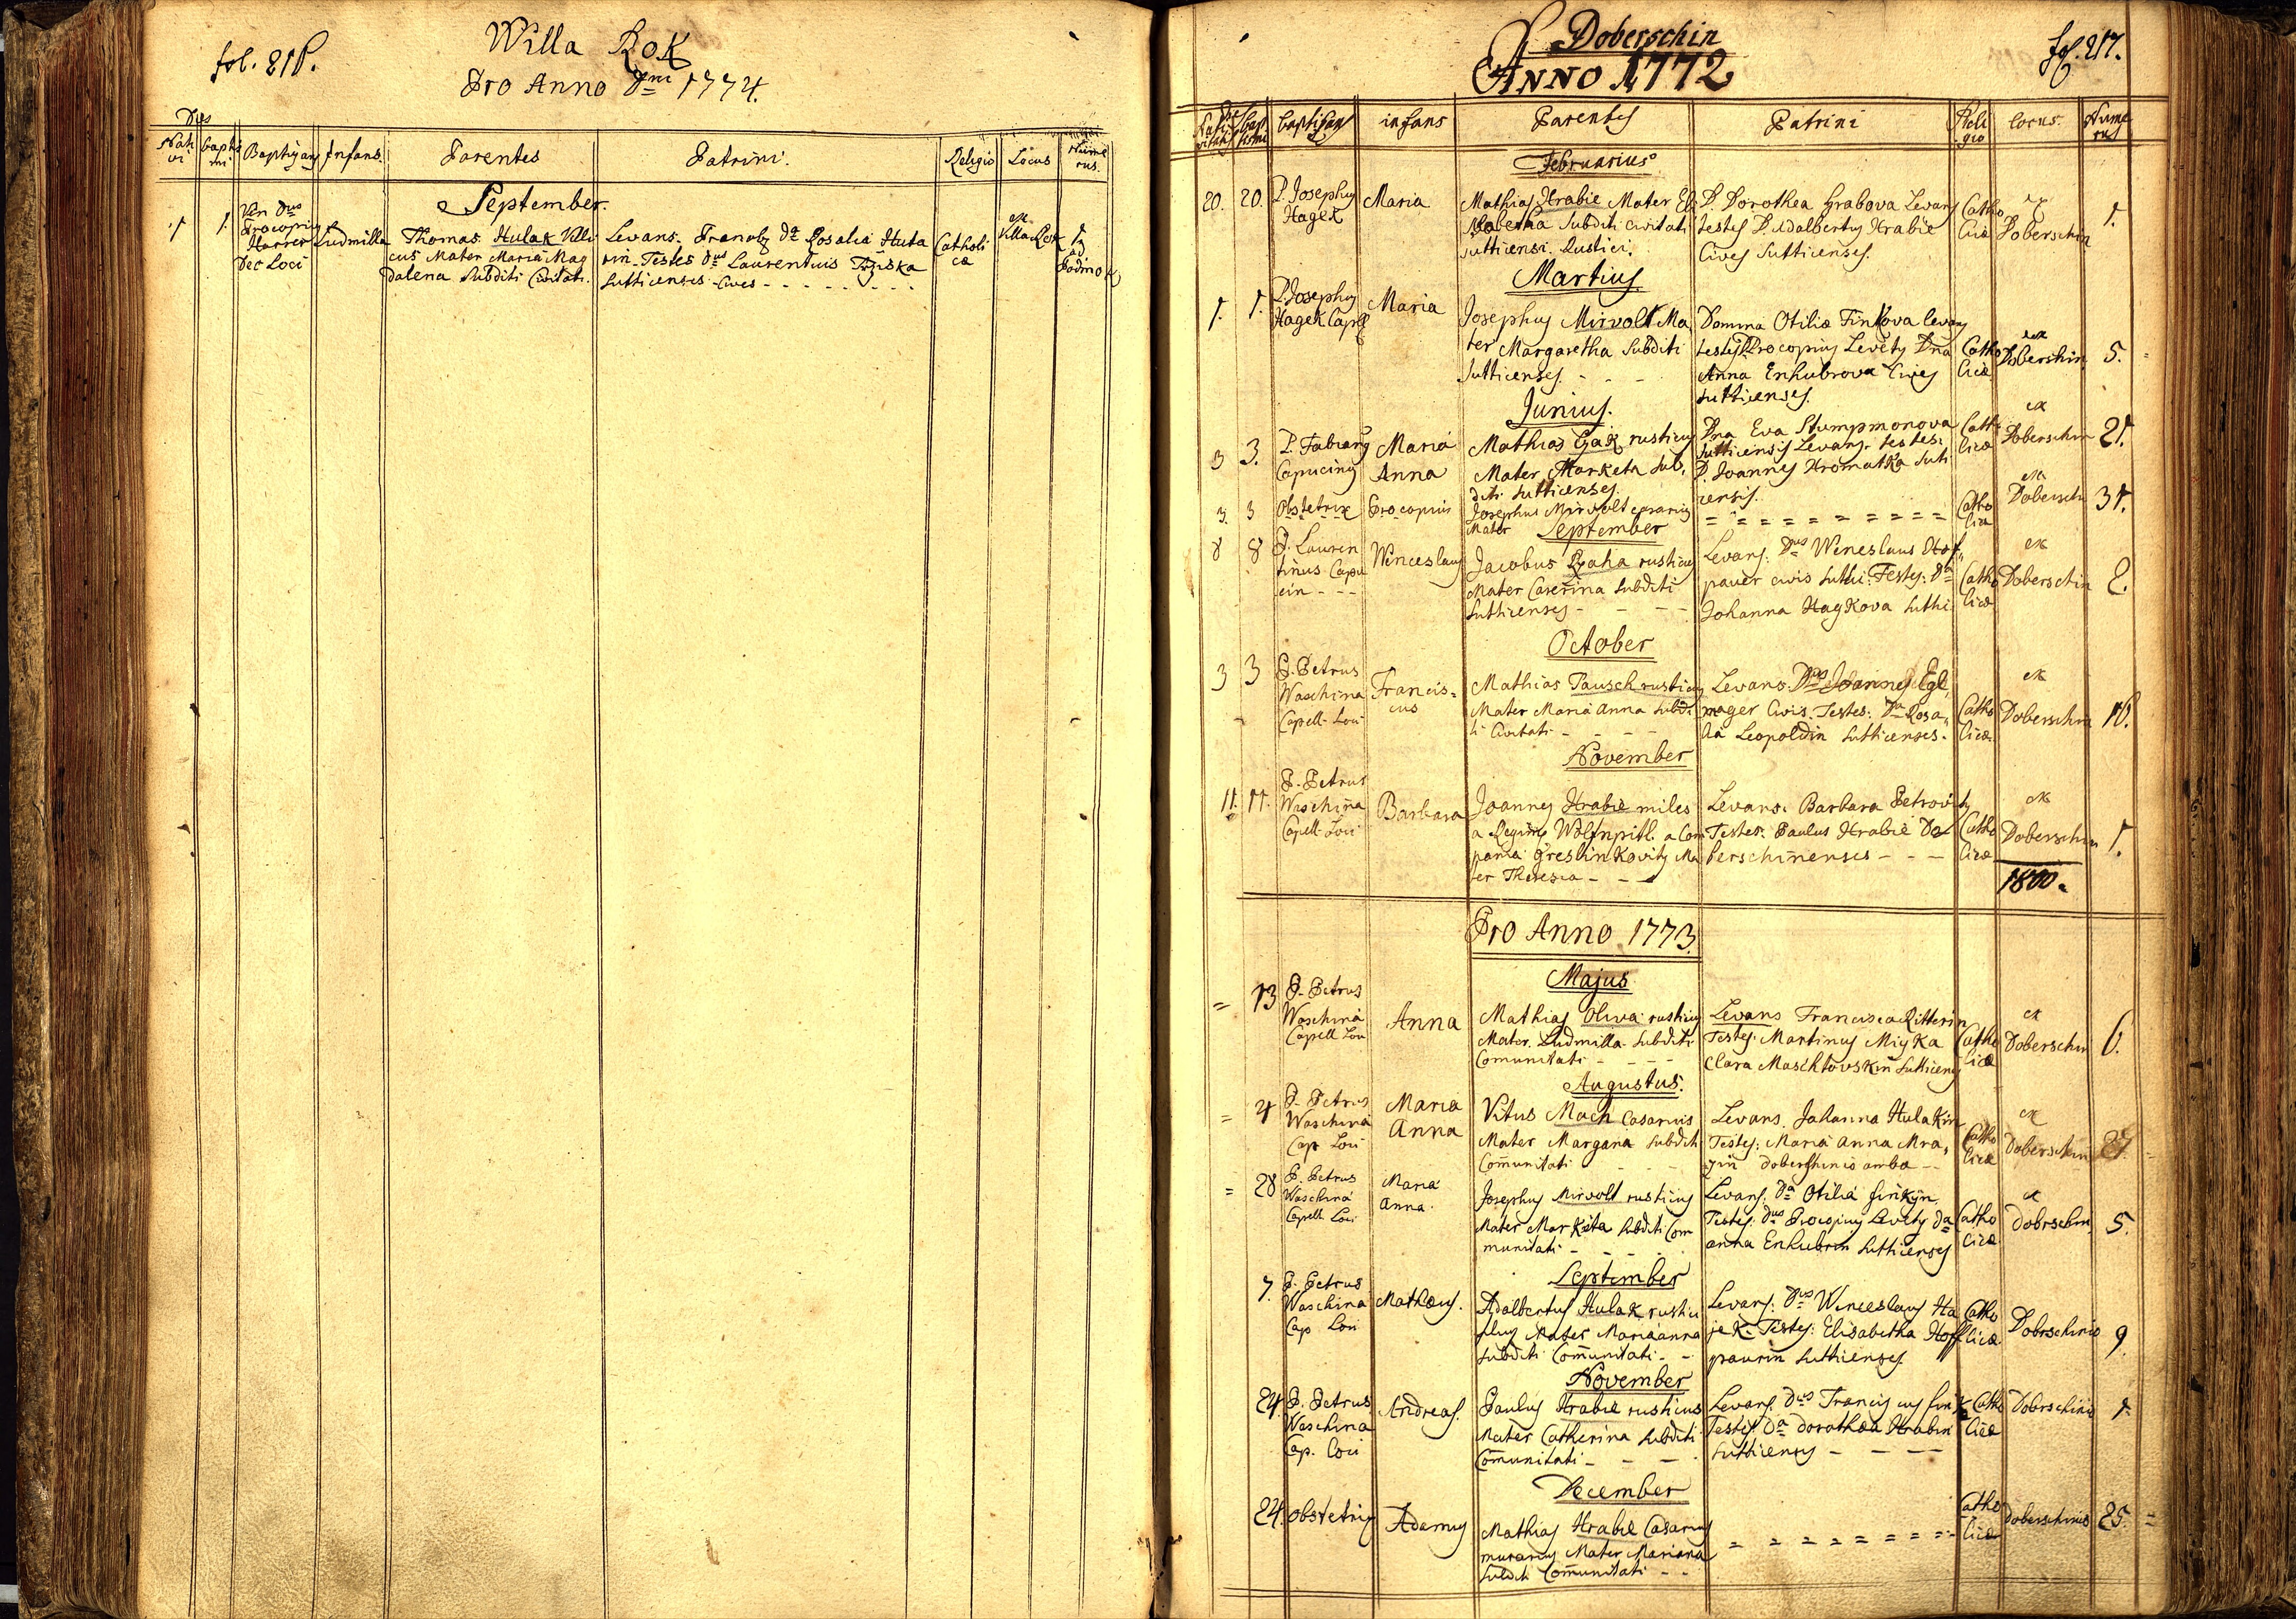 Willa Rok
Pro Anno Dni 1774.
Dies
Nati
vi
bapti
mi
Baptizans
Infans
Parentes
Patrini.
Religio
Locus
Nume
rus.
September.
1
1.
Procopius
Harrer
Dec Loci
Ludmilla
Thomas Hulak Villi
cus Mater Maria Mag
dalena Subditi Civitati.
Levans. Da Rosalia Huta
rin. Testes Dus Laurentius
Sutticenses Cives
Catholi
ca
ex
Villa Rok
1
ad
Doberschin
fol. 217.
ANNO 1772
Dies
Nati
vitatis
Bap
tismi
baptisans
infans
Parentes
Patrini
Reli
gio
locus.
Nume
rus
Februarius
20.
20.
P. Josephus
Hagek
Maria
Mathias Hrabie Mater
Subditi Civitati
Sutticensi Rustici.
D. Dorothea Hrabova Levans
testes D. Adalbertus Hrabie
Cives Sutticenses.
Catho
licæ
ex
Doberschin
1.
Martius
1.
1.
P. Josephus
Hagek Capel
Maria
Josephus Mirvolt Ma
ter Margaretha Subditi
Sutticenses. - - -
Domina Otilia Finkova levans
testes Procopius Levety Dna
Anna Enhubrova Cives
Sutticenses.
Catho
licæ
ex
Dobershin
5.
Junius.
3
3.
P. Fabianus
Capucinus
Maria
Anna
Mathias Gak rusticus
Mater Marketa Sub,
diti Sutticenses.
Dna Eva Stumpmonova
Sutticensis Levans. testes:
D. Joannes Hromatka Suti
censis.
Catho
licæ
ex
Doberschin
21.
3.
3
Obstetrix
Procopius
Josephus Mirvolt casarius
Mater
= = = = = = = = = =
Catho
lica
ex
Dobersch
31.
September
8
8
P. Lauren
tinus Capu
cin - - -
Wenceslaus
Jacobus Raha rusticus
Mater Caterina Subditi
Sutticenses - - - -
Levans: Dus Wenceslaus Hof,
pauer civis Sutti: Testes: Da
Johanna Hagkova Sutti
Catho
licæ
ex
Doberschin
2.
October
3
3
P. Petrus
Waschina
Capell. Loci
Francis=
cus
Mathias Pausch rusticus
Mater Maria Anna Subdi
ti Civitati - - - -
Levans. Dus Joannes Egl,
mager Civis. Testes: Da Rosa,
lia Leopoldin Sutticenses.
Catho
licæ
ex
Doberschin
16.
November
11.
11.
P. Petrus
Waschina
Capell. Loci
Barbara
Joannes Hrabie miles
a Legione a Com
pania Ma
ter Theresia - - -
Levans. Barbara
Testes. Paulus Hrabie Do
berschinenses - - -
Catho
licæ
ex
Doberschin
1.
1800.
Pro Anno 1773
Majus
=
13
P. Petrus
Waschina
Capell Loci
Anna
Mathias Oliva rusticus
Mater. Ludmilla. Subditi
Comunitati - - - -
Levans Francisca Ritterin
Testes: Martinus Miska
Clara Maschtovskin Sutticens
Catho
licæ
ex
Doberschin
6.
Augustus.
=
4
P. Petrus
Waschina
Cap Loci
Maria
Anna
Vitus Mach Casarius
Mater Margana Subditi
Comunitati - - -
Levans. Johanna Hulakin
Testes: Maria Anna Mra,
zin Doberschinio amba --
Catho
licæ
ex
Doberschin
27.
=
28
P. Petrus
Waschina
Capell. Loci
Maria
Anna.
Josephus Mirvolt rusticus
Mater Marketa Subditi Com
munitati - - - -
Levans: Da Otilia finkin
Testes: Dus Procopius Levety Da
anna Enhubrin Sutticenses
Catho
licæ
ex
Dobrschin
5.
September
7.
P. Petrus
Waschina
Cap Loci
Matheus.
Adalbertus Hulak rusti
cus Mater Marianna
Subditi Comunitati - -
Levans: Dus Wenceslaus Ha
jek. Testes: Elisabetha Hoff
paurin Sutticenses.
Catho
licæ
Dobrschinio
9.
November
24
P. Petrus
Waschina
Cap. Loci
Andreas.
Paulus Hrabie rusticus
Mater Catherina Subditi
Comunitati - - - -
Levans. Dus Franciscus fink
Testes: Da Dorothea Hrabin
Sutticenses - - - -
Catho
licæ
Dobrschinio
1.
December
24.
Obstetrix
Adamus
Mathias Hrabie Casarius
murarius Mater Mariana
Subditi Comunitati - -
= = = = = = = =
Catho
licæ
Doberschinio
25.